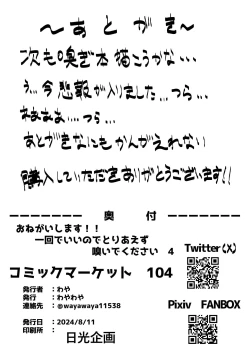 ～あとがき～
次も嗅ぎ本描こうかな…
う…今悲報が入りました…つら…
ああああ…つら…
あとがきなにもかんがえれない
購入していただきありがとうございます!!
奥 付
おねがいします！！
一回でいいのでとりあえず
嗅いでください 4
Twitter(X)
コミックマーケット 104
Pixiv FANBOX
発行者 ：わや
発行 ：わやわや
連絡先 ：@wayawaya11538
発行日 ：2024/8/11
印刷所 ：日光企画